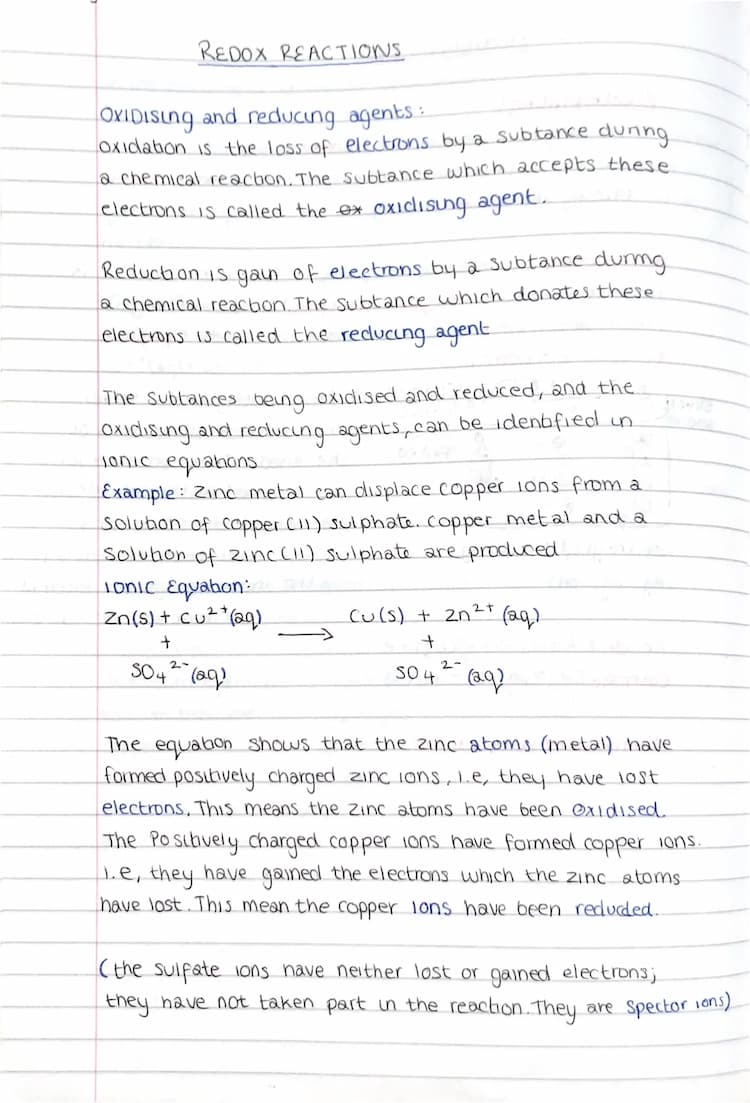 REDOX REACTIONS
OXIDISING and reducing agents:
oxidation is the loss of electrons by a subtance during
a chemical reaction. The subtance which accepts these
electrons is called the ox oxidising agent.
Reduction is gain of electrons by a subtance during
a chemical reaction. The subtance which donates these
electrons is called the reducing agent
The subtances being oxidised and reduced, and the
oxidising and reducing agents, can be identified in
ionic equations
Example: Zinc metal can displace copper ions from a
solution of copper (II) sulphate. copper metal and a
solution of zinc (II) sulphate are produced
Ionic Equation:
Zn(s) + Cu²⁺(aq) ⟶ Cu(s) + Zn²⁺ (aq)
+ +
SO₄²⁻(aq) SO₄²⁻ (aq)
The equation shows that the zinc atoms (metal) have
formed positively charged zinc ions, i.e, they have lost
electrons. This means the zinc atoms have been oxidised.
The Positively charged copper ions have formed copper ions.
i.e, they have gained the electrons which the zinc atoms
have lost. This mean the copper ions have been reducded.
(the sulfate ions have neither lost or gained electrons;
they have not taken part in the reaction. They are spector ions)